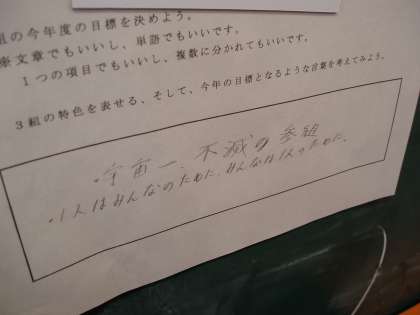 組の今年度の目標を決めよう。
文章でもいいし、単語でもいいです。
１つの項目でもいいし、複数に分かれてもいいです。
３組の特色を表せる、そして、今年の目標となるような言葉を考えてみよう。
・宇宙一、不滅の参組
・１人はみんなのために、みんなは１人のために。